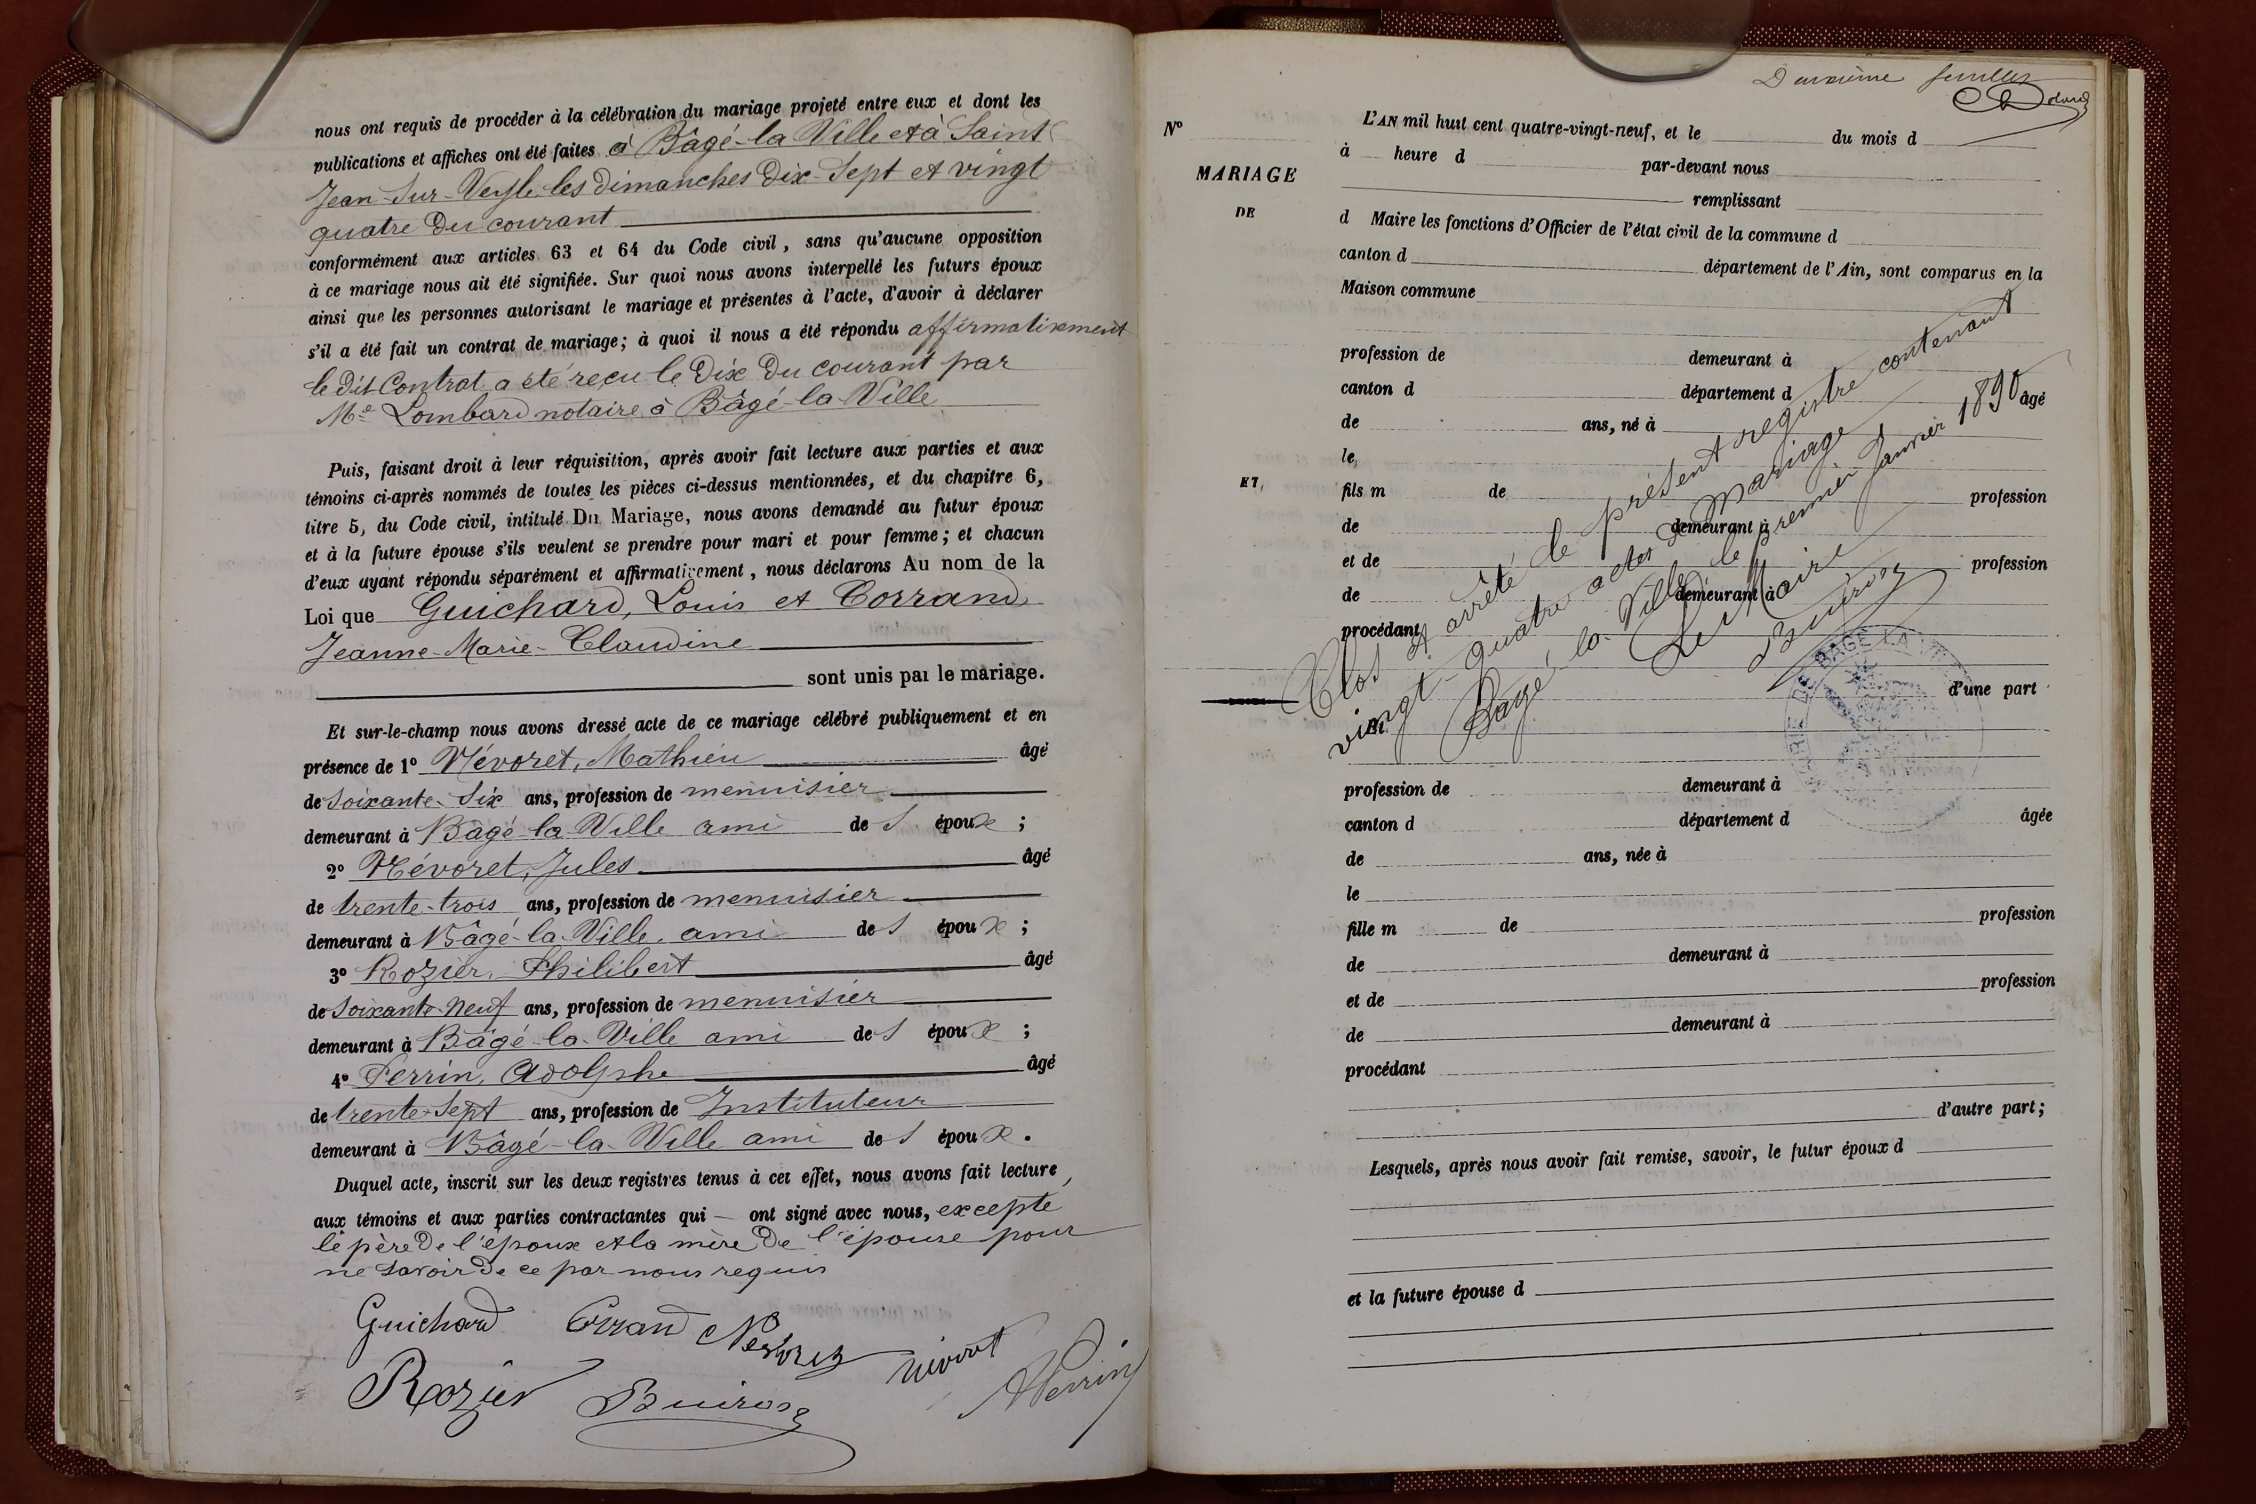 nous ont requis de procéder à la célébration du mariage projeté entre eux et dont les
publications et affiches ont été faites à Bâgé-la Ville et à Saint
Jean-Sur-Veyle les dimanches Dix-Sept et vingt
quatre Du courant
conformément aux articles 63 et 64 du Code civil, sans qu'aucune opposition
à ce mariage nous ait été signifiée. Sur quoi nous avons interpellé les futurs époux
ainsi que les personnes autorisant le mariage et présentes à l'acte, d'avoir à déclarer
s'il a été fait un contrat de mariage; à quoi il nous a été répondu affirmativement
le Dit Contrat a été reçu le Dix Du courant par
Me Lombard notaire à Bâgé-la-Ville
Puis, faisant droit à leur réquisition, après avoir fait lecture aux parties et aux
témoins ci-après nommés de toutes les pièces ci-dessus mentionnées, et du chapitre 6,
titre 5, du Code civil, intitulé Du Mariage, nous avons demandé au futur époux
et à la future épouse s'ils veulent se prendre pour mari et pour femme; et chacun
d'eux ayant répondu séparément et affirmativement, nous déclarons Au nom de la
Loi que Guichard, Louis et Corrand
Jeanne-Marie-Claudine
sont unis par le mariage.
Et sur-le-champ nous avons dressé acte de ce mariage célébré publiquement et en
présence de 1° Névoret, Mathieu âgé
de Soixante-Six ans, profession de menuisier
demeurant à Bâgé-la-Ville ami des époux;
2° Névoret, Jules âgé
de trente-trois ans, profession de menuisier
demeurant à Bâgé-la-Ville. ami des époux;
3° Rozier, Philibert âgé
de Soixante-Neuf ans, profession de menuisier
demeurant à Bâgé-la-Ville ami des époux;
4° Perrin, Adolphe âgé
de trente-Sept ans, profession de Instituteur
demeurant à Bâgé-la-Ville ami des époux.
Duquel acte, inscrit sur les deux registres tenus à cet effet, nous avons fait lecture
aux témoins et aux parties contractantes qui — ont signé avec nous, excepté
le père De l'époux et la mère De l'épouse pour
ne Savoir De ce par nous requis
Guichard Corrand Nevoret Névoret
Rozier Buiron Perrin
Deuxième feuillet
N° L'AN mil huit cent quatre-vingt-neuf, et le du mois d
à heure d par-devant nous
MARIAGE
remplissant
DE
d Maire les fonctions d'Officier de l'état civil de la commune d
canton d département de l'Ain, sont comparus en la
Maison commune
profession de demeurant à
canton d département d âgé
de ans, né à
le
ET
fils m de profession
de demeurant à
et de profession
de demeurant à
procédant
d'une part
Et
Clos et arrêté le présent registre contenant
vingt-quatre actes De Mariage
Bâgé-la-Ville le Premier Janvier 1890
Le Maire
Buiron
MAIRIE DE BAGÉ LA VILLE
profession de demeurant à
canton d département d âgée
de ans, née à
le
fille m de profession
de demeurant à
et de profession
de demeurant à
procédant
d'autre part;
Lesquels, après nous avoir fait remise, savoir, le futur époux d
et la future épouse d